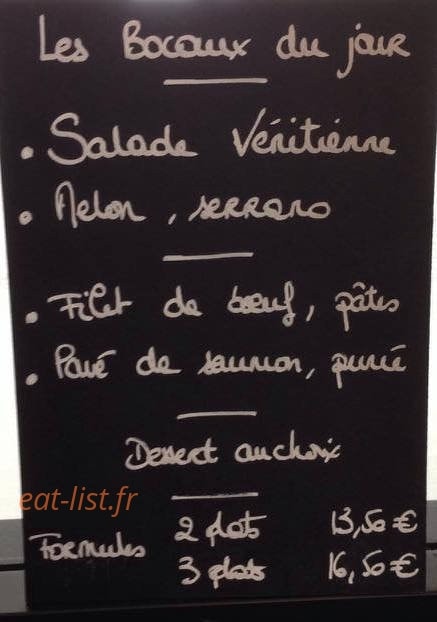 Les Bocaux du jour
• Salade Vénitienne
• Melon, serrano
• Filet de bœuf, pâtes
• Pavé de saumon, purée
Dessert au choix
eat-list.fr
Formules 2 plats 13,50 €
3 plats 16,50 €